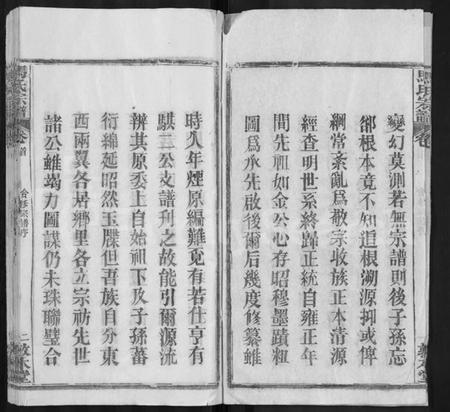 變幻莫測若無宗譜則後子孫忘
卻根本竟不知追根溯源抑或俾
綱常紊亂爲敬宗收族正本清源
經查明世系終歸正統自雍正年
間先祖如金公心存昭穆墨蹟粗
圖爲承先啟後爾后幾度修纂雖
時久年煙原編難覓有若仕亨有
騏三公支譜刋之故能引爾源流
辨其原委上自始祖下及子孫蕃
衍綿延昭然玉牒但吾族自分東
西兩翼各居鄉里各立宗祊先世
諸公雖竭力圖謀仍未珠聯璧合
馬氏宗譜
卷首
合修宗譜序
二
敦本堂